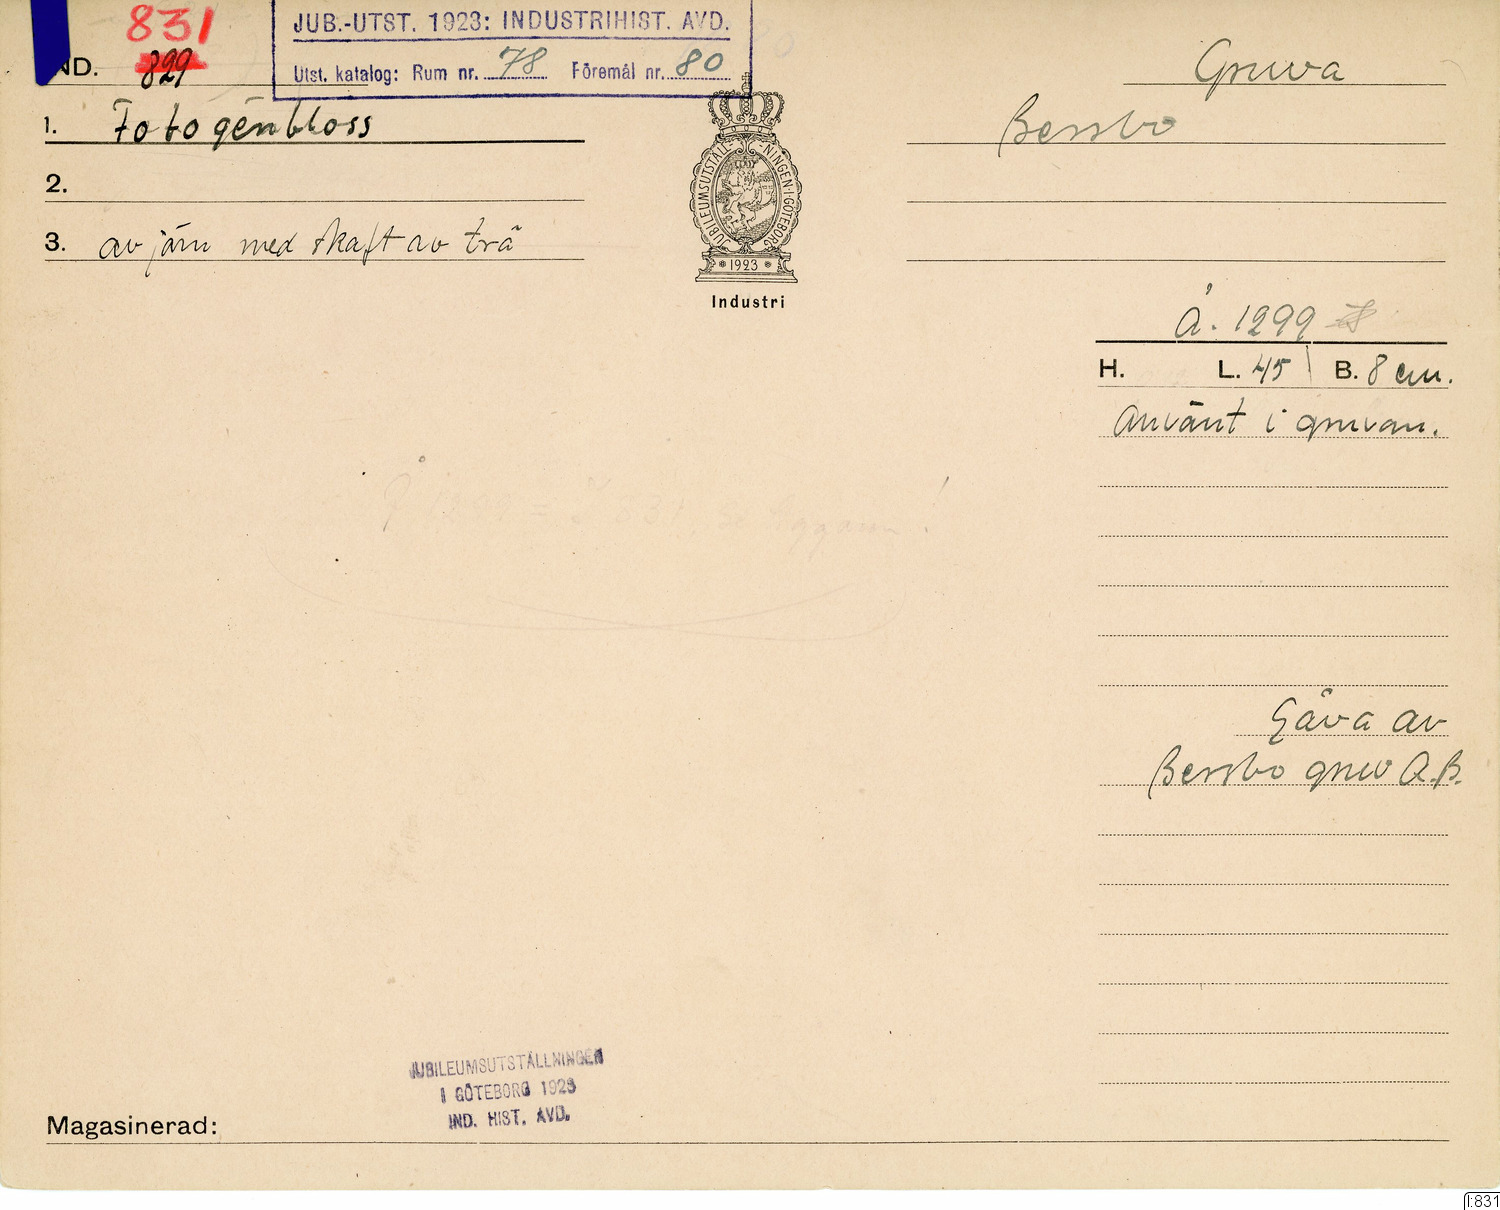 831
JUB.-UTST. 1923: INDUSTRIHIST. AVD.
IND. 829
Utst. katalog: Rum nr. 78 Föremål nr. 80
Gruva
1. Fotogénbloss
Bersbo
2.
3. av järn med skaft av trä
JUBILEUMSUTSTÄLLNINGEN·I·GÖTEBORG
1923
Industri
Å. 1299
H. L. 45 B. 8 cm.
Använt i gruvan.
Å 1299 = 831
Gåva av
Bersbo gruv A.B.
JUBILEUMSUTSTÄLLNINGEN
I GÖTEBORG 1923
IND. HIST. AVD.
Magasinerad:
I:831